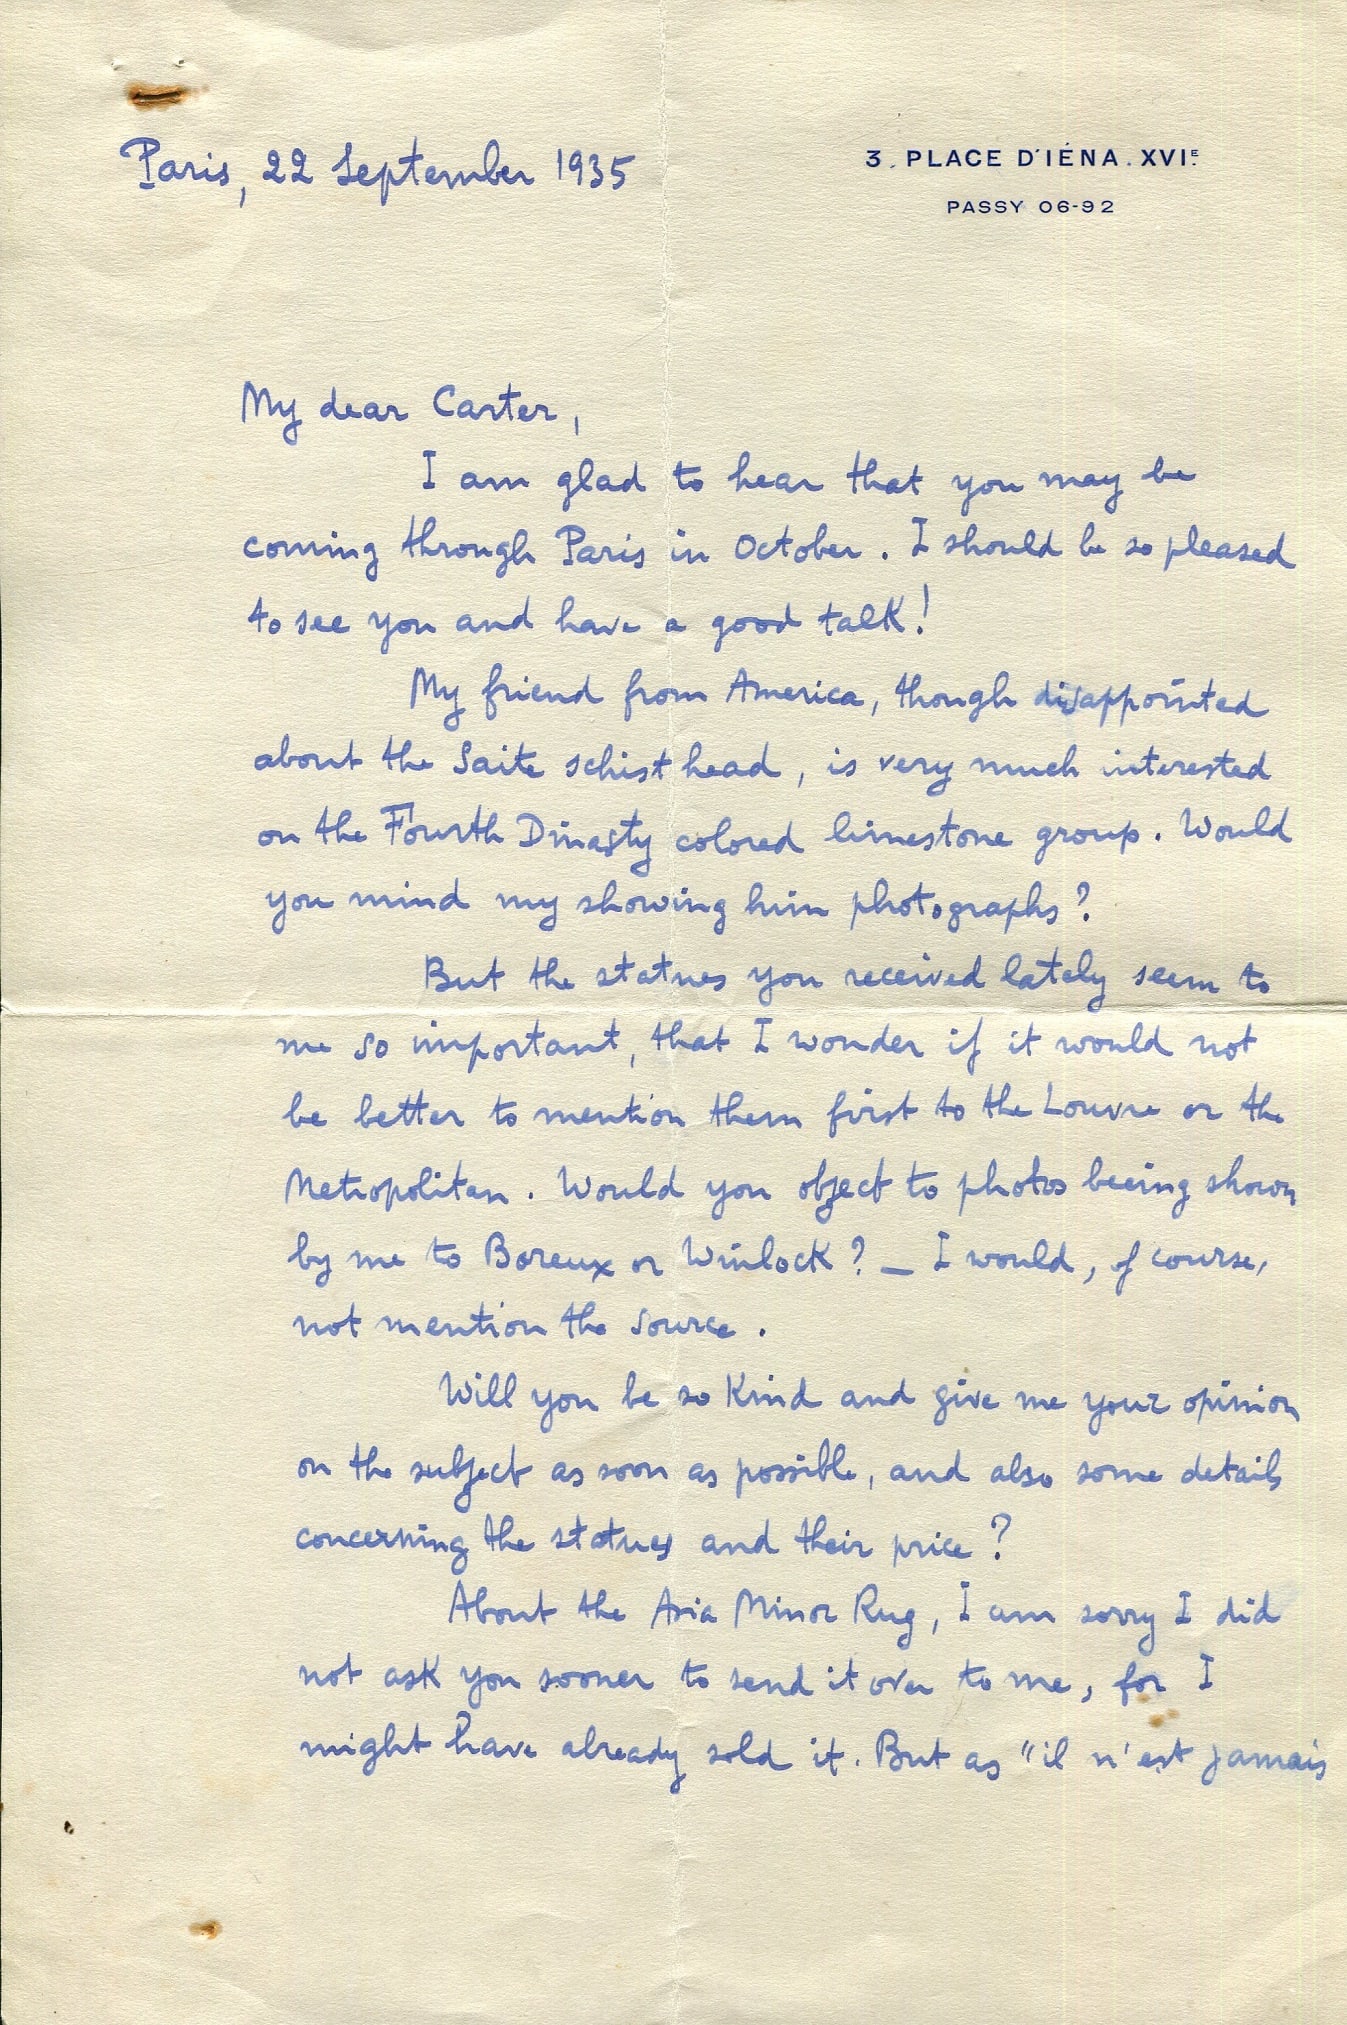 Paris, 22 September 1935
3. PLACE D'IÉNA. XVIE.
PASSY 06-92
My dear Carter,
I am glad to hear that you may be
coming through Paris in October. I should be so pleased
to see you and have a good talk!
My friend from America, though disappointed
about the Saite schist head, is very much interested
on the Fourth Dinasty colored limestone group. Would
you mind my showing him photographs?
But the statues you received lately seem to
me so important, that I wonder if it would not
be better to mention them first to the Louvre or the
Metropolitan. Would you object to photos beeing shown
by me to Boreux or Winlock? _ I would, of course,
not mention the source.
Will you be so Kind and give me your opinion
on the subject as soon as possible, and also some details
concerning the statues and their price?
About the Asia Minor Rug, I am sorry I did
not ask you sooner to send it over to me, for I
might have already sold it. But as "il n'est jamais